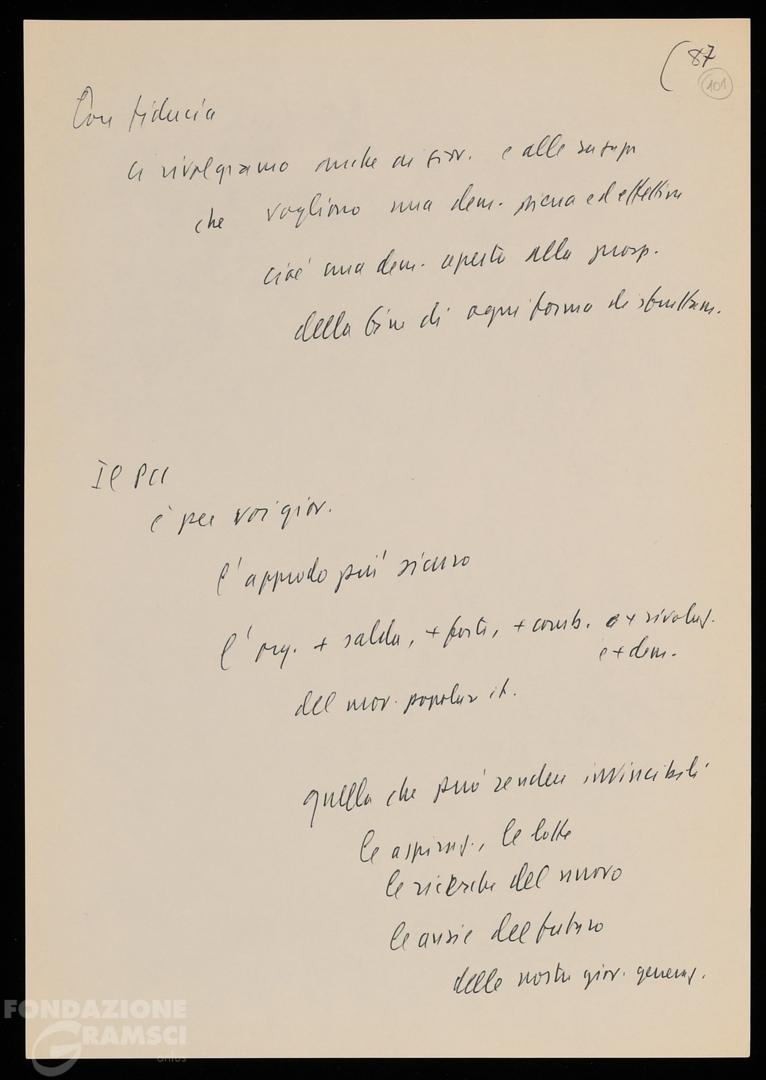 (87
101
Con fiducia
ci rivolgiamo anche ai giov. e alle ragazze
che vogliono una dem. piena ed effettiva
cioè una dem. aperta alla prosp.
della fine di ogni forma di sfruttam.
Il PCI
è per voi giov.
l'approdo più sicuro
l'org. + salda, + forte, + comb. e + rivoluz.
e + dem.
del mov. popolare it.
quella che può rendere invincibili
le aspiraz., le lotte
le ricerche del nuovo
le ansie del futuro
delle nostre giov. generaz.
FONDAZIONE
GRAMSCI
onlus